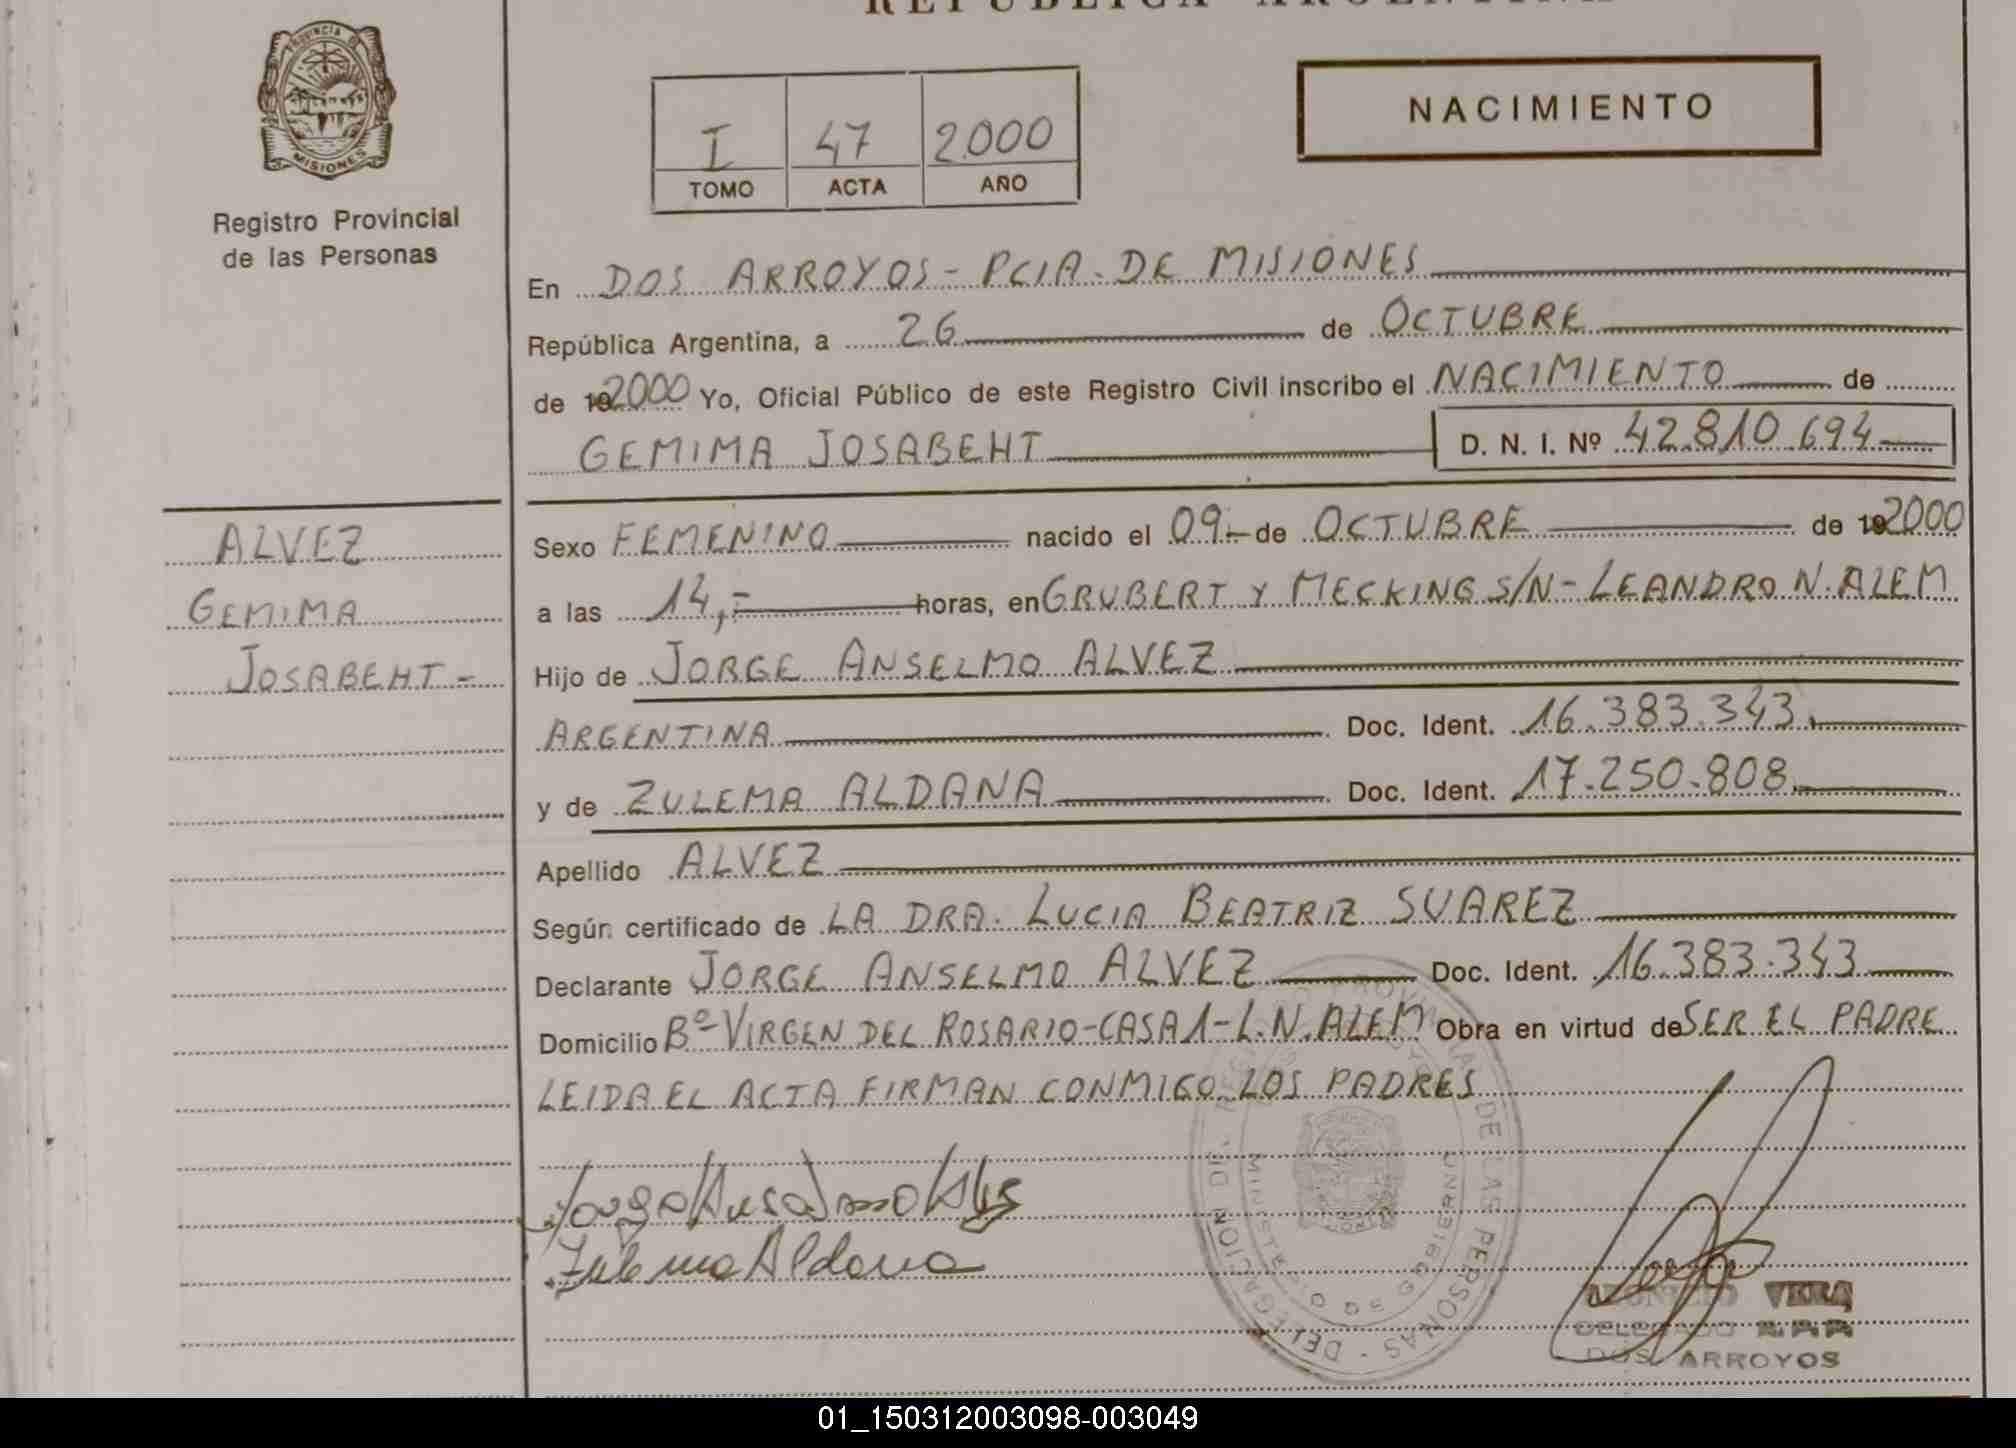 REPUBLICA ARGENTINA
PROVINCIA DE
MISIONES
Registro Provincial
de las Personas
I 47 2000
TOMO ACTA AÑO
NACIMIENTO
En DOS ARROYOS - PCIA. DE MISIONES
República Argentina, a 26 de OCTUBRE
de 192000 Yo, Oficial Público de este Registro Civil inscribo el NACIMIENTO de
GEMIMA JOSABEHT D. N. I. Nº 42.810.694
ALVEZ
GEMIMA
JOSABEHT -
Sexo FEMENINO nacido el 09.- de OCTUBRE de 192000
a las 14,- horas, en GRUBERT Y MECKING S/N - LEANDRO N. ALEM
Hijo de JORGE ANSELMO ALVEZ
ARGENTINA Doc. Ident. 16.383.343.
y de ZULEMA ALDANA Doc. Ident. 17.250.808.
Apellido ALVEZ
Según certificado de LA DRA. LUCIA BEATRIZ SUAREZ
Declarante JORGE ANSELMO ALVEZ Doc. Ident. 16.383.343
Domicilio Bº- VIRGEN DEL ROSARIO-CASA 1-L.N.ALEM Obra en virtud de SER EL PADRE
LEIDA EL ACTA FIRMAN CONMIGO LOS PADRES
Jorge Anselmo Alvez
Zulema Aldana
DE LAS PERSONAS - DELEGACION
MINISTERIO DE GOBIERNO
VERA
DELEGADO
DOS ARROYOS
01_150312003098-003049